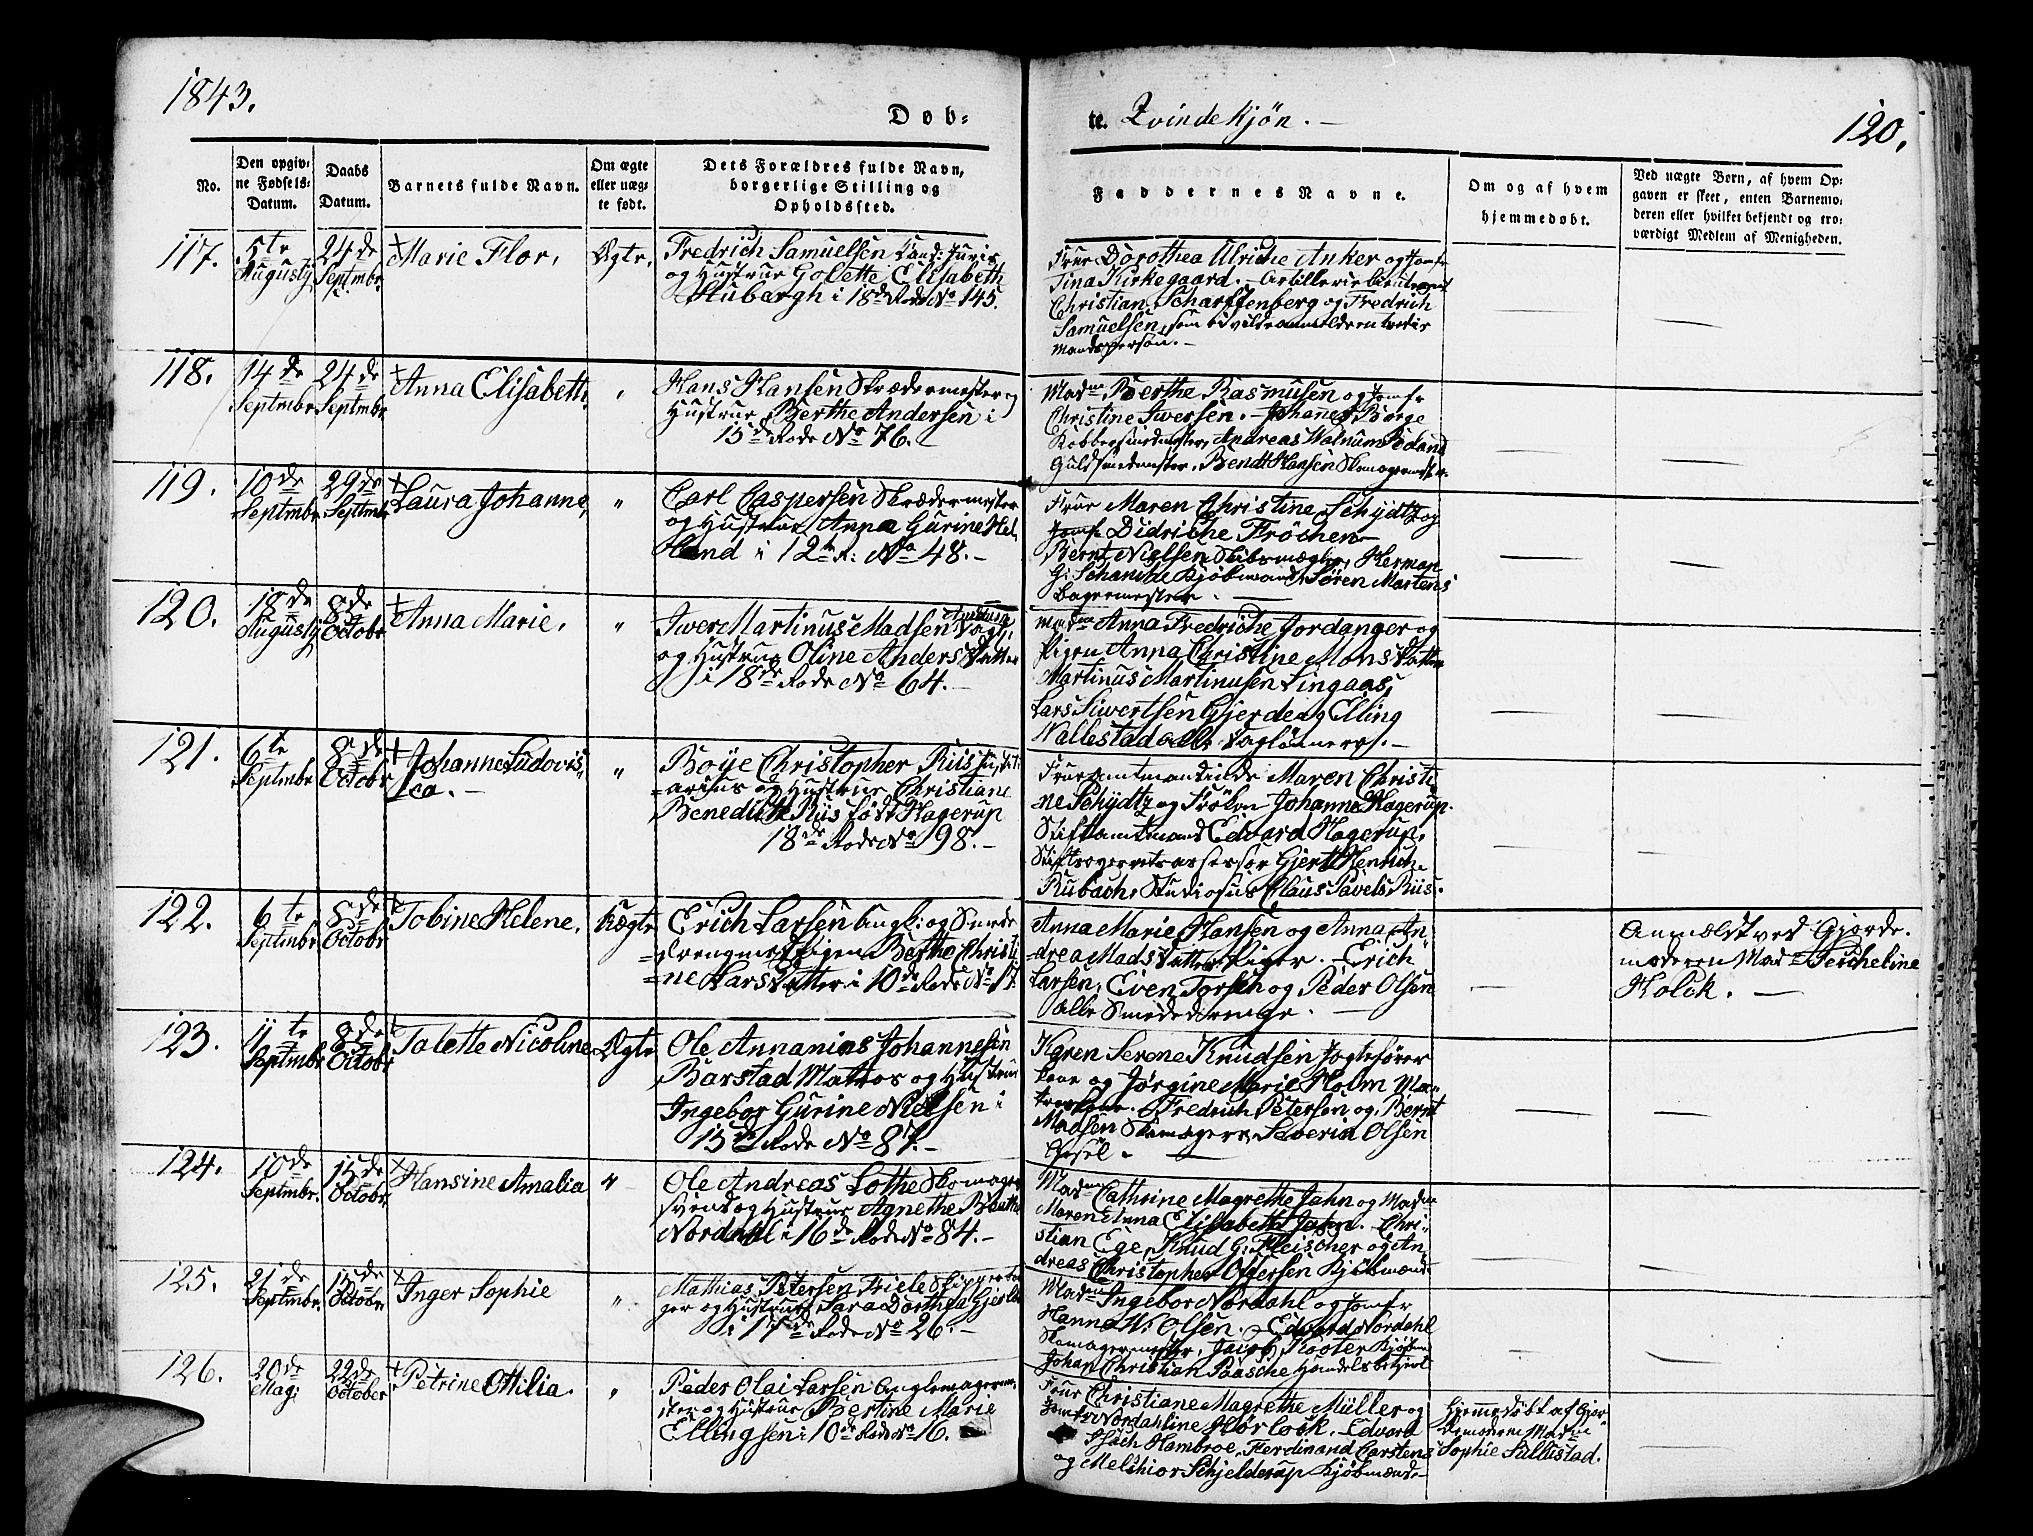 1843.
Døb-
te. Qvindekjøn. -
120.
No.
Den opgiv-
ne Fødsels-
Datum.
Daabs
Datum.
Barnets fulde Navn.
Om ægte
eller uæg-
te født.
Dets Forældres fulde Navn,
borgerlige Stilling og
Opholdssted.
Faddernes Navne.
Om og af hvem
hjemmedøbt.
Ved uægte Børn, af hvem Op-
gaven er skeet, enten Barnemo-
deren eller hvilket bekjendt og tro-
værdigt Medlem af Menigheden.
117.
5te
Augustj
24de
Septmbr.
Marie Flor,
Ægte,
Fredrich Samuelsen Cand: Juris
og Hustrue Golette Elisabeth
Stubargh i 18de Rode No 145.
Frue Dorothea Ulriche Anker og Jomfr
Tina Kirkegaard. Artillerie Lieutenant
Christian Scharffenberg og Fredrich
Samuelsen, som ei vilde anmelde en tredie
Mandsperson. -
118.
14de
Septmbr
24de
Septmbr
Anna Elisabeth
"
Hans Hansen Skrædermester og
Hustrue Berthe Andersen i
15de Rode No 76. -
Madme Berthe Rasmusen og Jomfr
Christine Iwersen. Johanes Borge
Kobbersmedmester, Andreas Walnum
Guldsmedmester, Bendt Hansen Skomagermester.
119.
10de
Septmbr
29de
Septmbr
Laura Johanne,
"
Carl Caspersen Skrædermester
og Hustrue Anna Gurine Hel,
land i 12te R: No 48. -
Frue Maren Christine Schydtz og
Jomfr Didriche Frøchen
Bernt Nielsen Skibsmægler, Herman
G: Schanche Kjøbmand, Søren Martens
Bagermester. -
120.
18de
Augustj
8de
Octobr
Anna Marie,
"
Iwer Martinus Madsen
og Hustrue Oline Anders Datter
i 18de Rode No 64. -
Madme Anna Fredriche Jordanger og
Pigen Anna Christine Mons Datter
Martinus Martinusen Lingaas,
Lars Siwertsen Gjerde og Elling
Wallestad alle Daglønnere. -
121.
6te
Septmbr
8de
Octobr
Johanne Ludovis
ca. -
"
Boye Christopher Riis Justiti-
arius og Hustrue Christiane
Benedicte Riis født Hagerup
18de Rode No 98. -
Frue Amtmandinde Maren Christi-
ne Schydtz og Frøken Johanne Hagerup.
Stiftamtmand Edvard Hagerup,
Stiftsoverretsassessor Gjert Henrich
Rubach, Studiosus Claus Pavels Riis.
122.
6te
Septmbr
8de
Octobr
Tobine Helene,
Uægte
Erich Larsen Ungk: og Smede
drengmed Pigen Berthe Christi-
ne Lars Datter i 10de Rode No 17.
Anna Marie Hansen og Anna An-
drea Mads Datter Piger. Erich
Larsen, Even Torsen og Peder Olsen
alle Smededrenge. -
Anmeldt ved Gjorde-
moderen Made Tercheline
Holck. -
123.
11te
Septmbr
8de
Octobr
Talette Nicoline
Ægte
Ole Annanias Johannesen
Barstad Matros og Hustrue
Ingebor Gurine Nielsen i
15de Rode No 87. -
Karen Serene Knudsen Jagtefører
kone og Jørgine Marie Holm Ma-
troskone. Fredrich Petersen og Bernt
Madsen Skomagere, Severin Olsen
124.
10de
Septmbr.
15de
Octobr
Hansine Amalia
"
Ole Andreas Lothe Skomager
svend og Hustrue Agnethe
Nordahl i 16de Rode No 84. -
Madme Cathrine Magrethe Jahn og Madme
Maren Anna Elisabeth Jahn. Chri-
stian Ege, Knud G: Fleischer og An-
dreas Christopher Oggersen Kjøbmænd
125.
21de
Septmbr.
15de
Octobr
Inger Sophie
"
Mathias Petersen Friele
ger og Hustrue Sara Dorthea
i 17de Rode No 26. -
Madme Ingebor Nordahl og Jomfr
Hanna W: Olsen. Edvard Nordahl
Skomagermester, Jacob Kooter Kjøbm
Johan Christian Paasche Handelsbetjent
126.
20de
Maj:
22de
October
Petrine Ottilia
"
Peder Olai Larsen
ster og Hustrue Bertine Marie
Ellingsen i 10de Rode No 16. -
Frue Christiane Magrethe Müller og
Jomfr Nordahline Hørlock. Edvard
Isach Hambroe, Ferdinand Carstens
og Melchior Schjelderup Kjøbmænd
Hjemmedøbt af Gjor-
demoderen Madme
Sophie Sællestad.